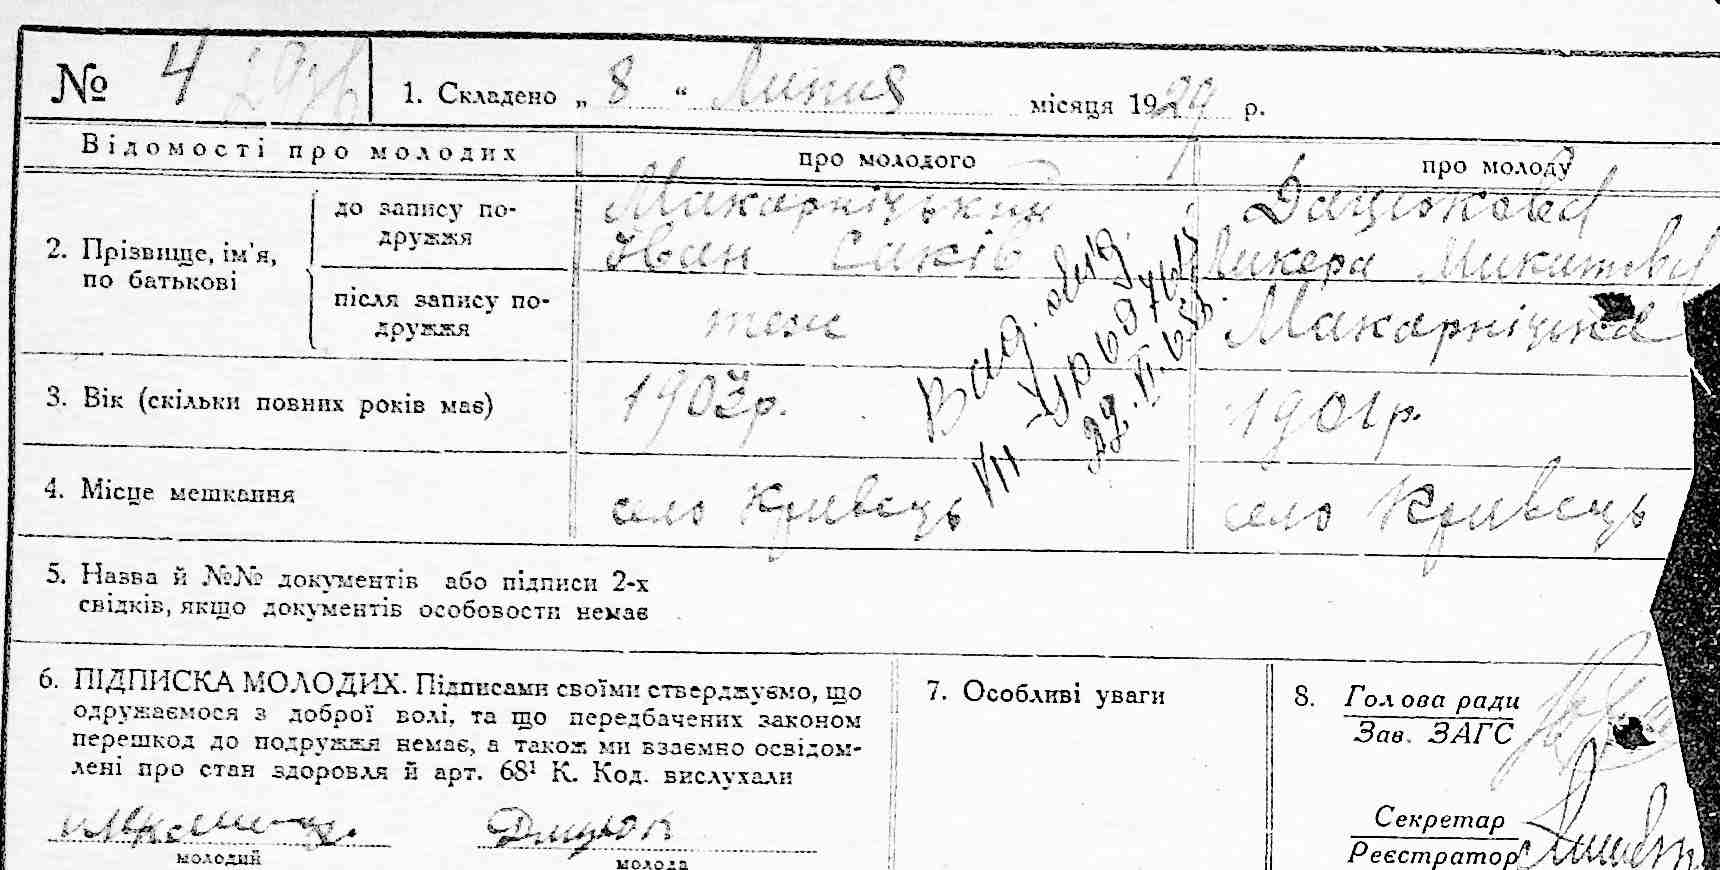 № 4 1. Складено „ 8 “ Липня місяця 1929 р.
Відомості про молодих про молодого про молоду
2. Прізвище, ім'я, по батькові
до запису по-
дружжя
Макарніцький
Іван Саків
Дацюкова
Ликера Микитовa
після запису по-
дружжя
теж
Макарніцька
3. Вік (скільки повних років має) 1903р. 1901р.
Вид. свід.
VII
29.VI.65г.
4. Місце мешкання село Кривець село Кривець
5. Назва й №№ документів або підписи 2-х
свідків, якщо документів особовости немає
6. ПІДПИСКА МОЛОДИХ. Підписами своїми стверджуємо, що
одружаємося з доброї волі, та що передбачених законом
перешкод до подружжя немає, а також ми взаємно освідом-
лені про стан здоровля й арт. 68¹ К. Код. вислухали
Дацюк
молодий молода
7. Особливі уваги
8. Голова ради
Зав. ЗАГС
Секретар
Реєстратор